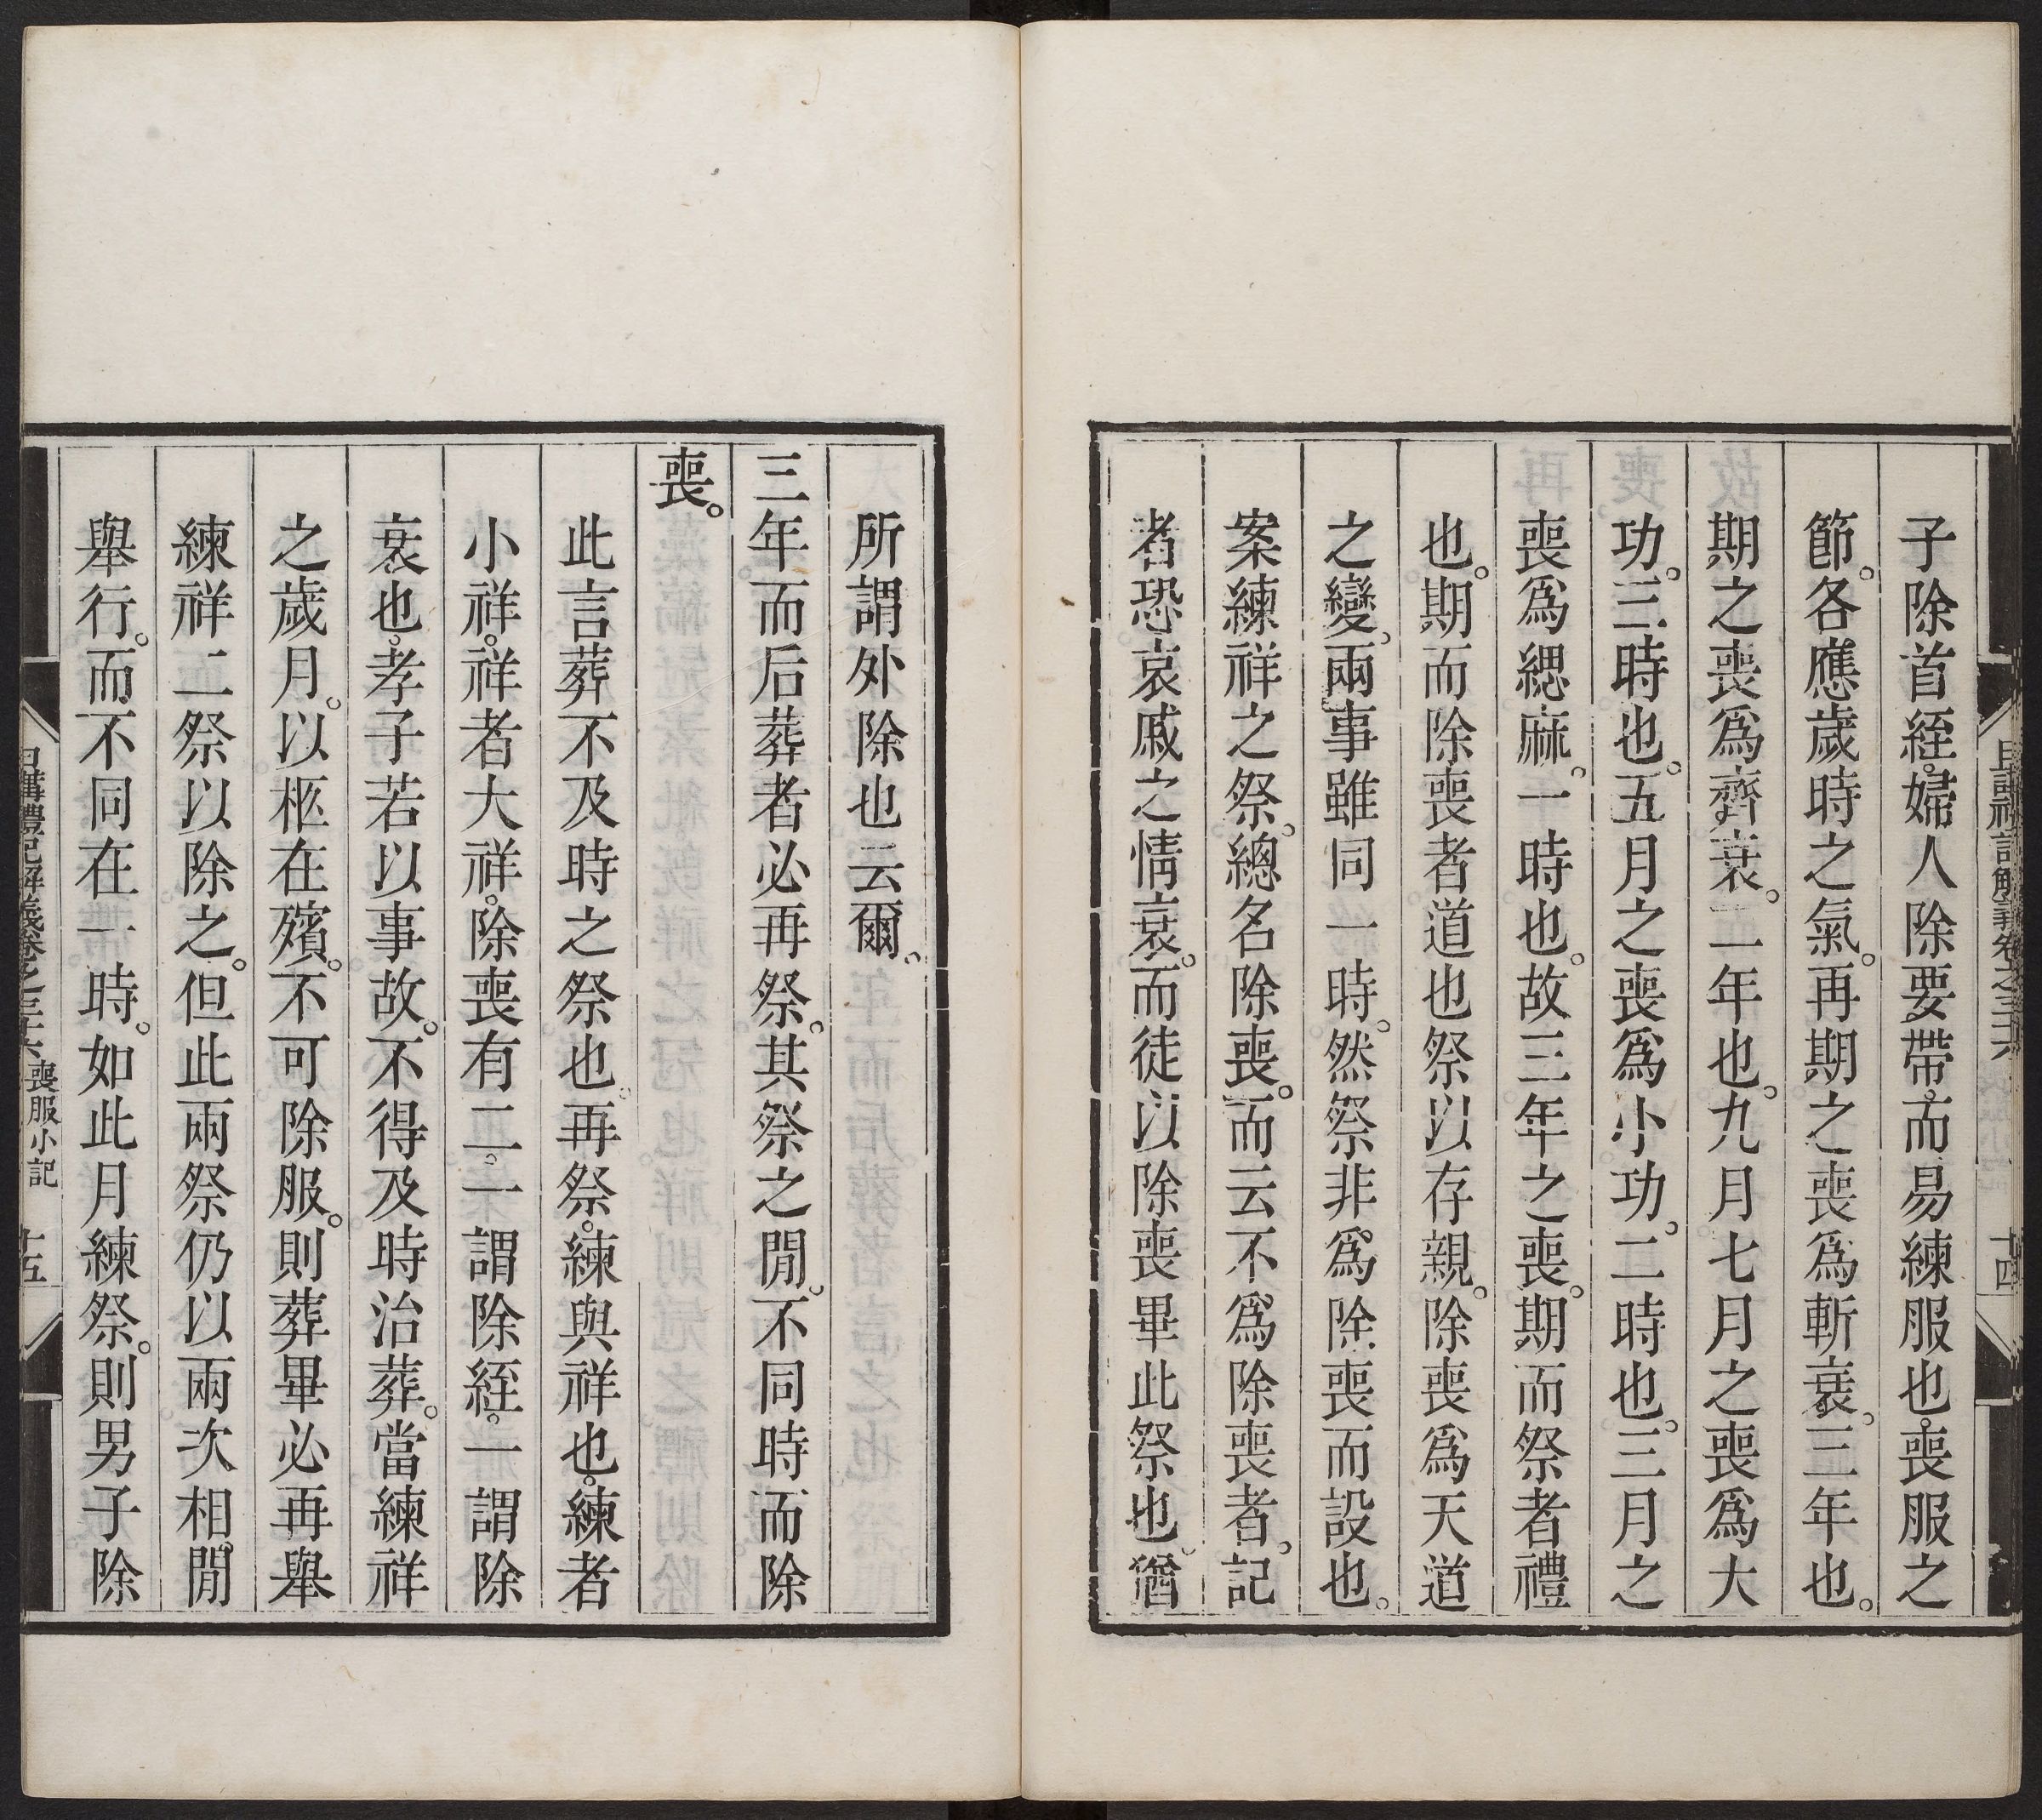 子除首絰。婦人除要帶。而易練服也。喪服之
節。各應歲時之氣。再期之喪爲斬衰。三年也。
期之喪爲齊衰。二年也。九月七月之喪爲大
功。三時也。五月之喪爲小功。二時也。三月之
喪爲緦麻。一時也。故三年之喪。期而祭者禮
也。期而除喪者道也祭以存親。除喪爲天道
之變。兩事雖同一時。然祭非爲除喪而設也。
案練祥之祭。總名除喪。而云不爲除喪者。記
者恐哀戚之情衰。而徒以除喪畢此祭也。猶
所謂外除也云爾。
三年而后葬者必再祭。其祭之閒。不同時而除
喪。
此言葬不及時之祭也。再祭。練與祥也。練者
小祥。祥者大祥。除喪有二。一謂除絰。一謂除
衰也。孝子若以事故。不得及時治葬。當練祥
之歲月。以柩在殯。不可除服。則葬畢必再舉
練祥二祭以除之。但此兩祭仍以兩次相閒
舉行。而不同在一時。如此月練祭。則男子除
日講禮記解義卷之三十六 喪服小記 十五
日講禮記解義卷之三十六 十四